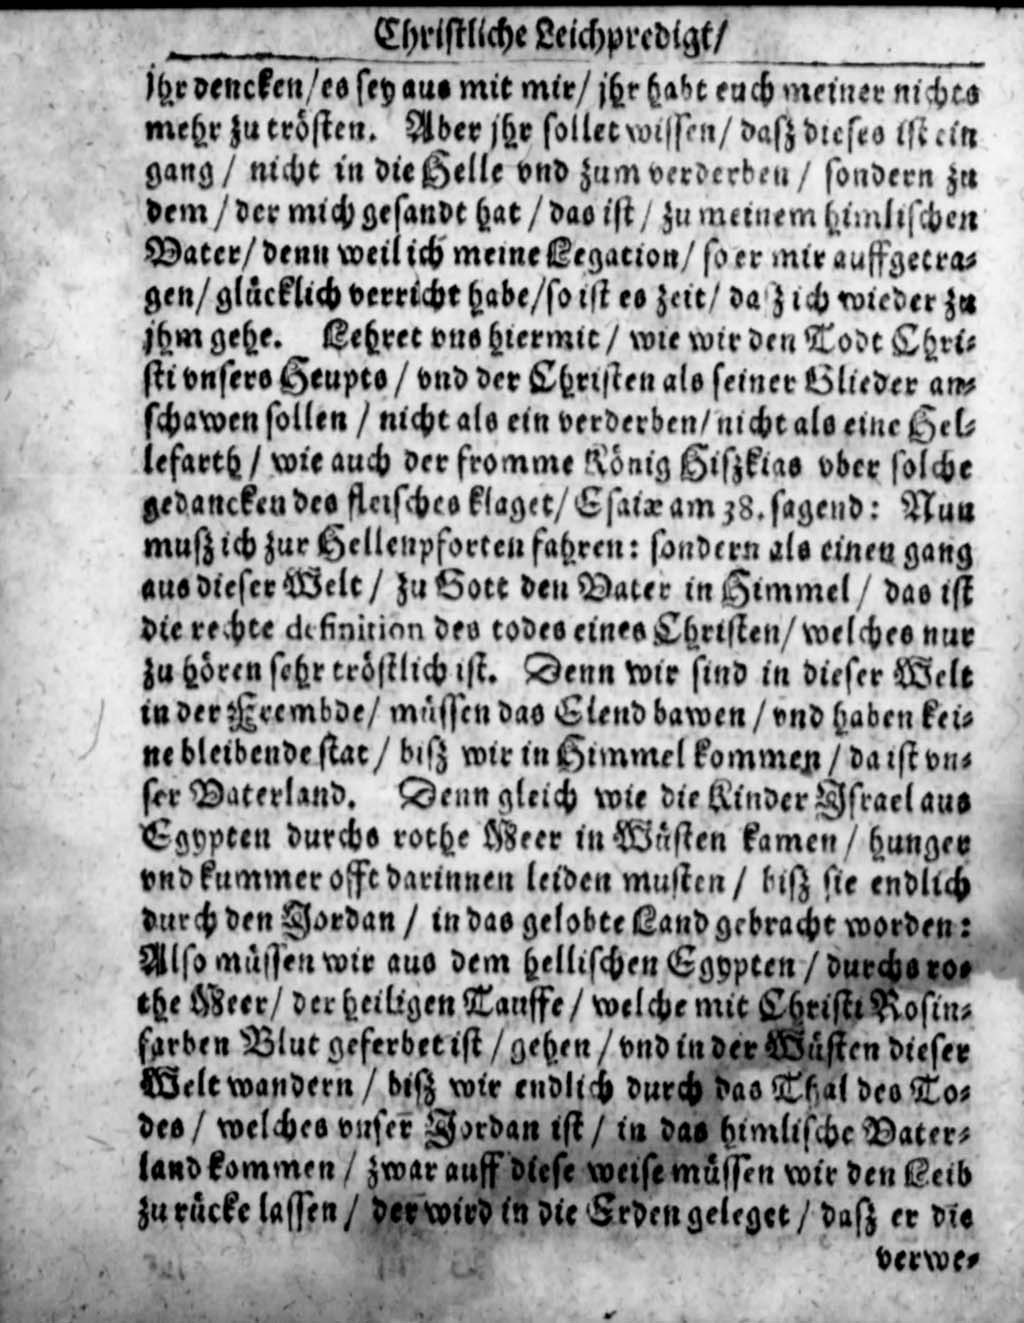 Christliche Leichpredigt/
jhr dencken/es sey aus mit mir/ jhr habt euch meiner nichts
mehr zu trösten. Aber jhr sollet wissen/ daß dieses ist ein
gang / nicht in die Helle vnd zum verderben / sondern zu
dem / der mich gesandt hat / das ist / zu meinem himlischen
Vater/ denn weil ich meine Legation/ so er mir auffgetra-
gen/ glücklich verricht habe/so ist es zeit/ daß ich wieder zu
jhm gehe. Lehret vns hiermit / wie wir den Todt Chri-
sti vnsers Heupts / vnd der Christen als seiner Glieder an-
schawen sollen / nicht als ein verderben/ nicht als eine Hel-
lefarth / wie auch der fromme König Hißkias vber solche
gedancken des fleisches klaget/ Esaiæ am 38. sagend: Nun
muß ich zur Hellenpforten fahren: sondern als einen gang
aus dieser Welt / zu Gott den Vater in Himmel / das ist
die rechte definition des todes eines Christen/ welches nur
zu hören sehr tröstlich ist. Denn wir sind in dieser Welt
in der Frembde/ müssen das Elend bawen / vnd haben kei-
ne bleibende stat / biß wir in Himmel kommen / da ist vn-
ser Vaterland. Denn gleich wie die Kinder Israel aus
Egypten durchs rothe Meer in Wüsten kamen / hunger
vnd kummer offt darinnen leiden musten / biß sie endlich
durch den Jordan / in das gelobte Land gebracht worden:
Also müssen wir aus dem hellischen Egypten / durchs ro-
the Meer/ der heiligen Tauffe / welche mit Christi Rosin-
farben Blut geferbet ist / gehen / vnd in der Wüsten dieser
Welt wandern / biß wir endlich durch das Thal des To-
des / welches vnser Jordan ist / in das himlische Vater-
land kommen / zwar auff diese weise müssen wir den Leib
zu rücke lassen / der wird in die Erden geleget / daß er die
verwe-